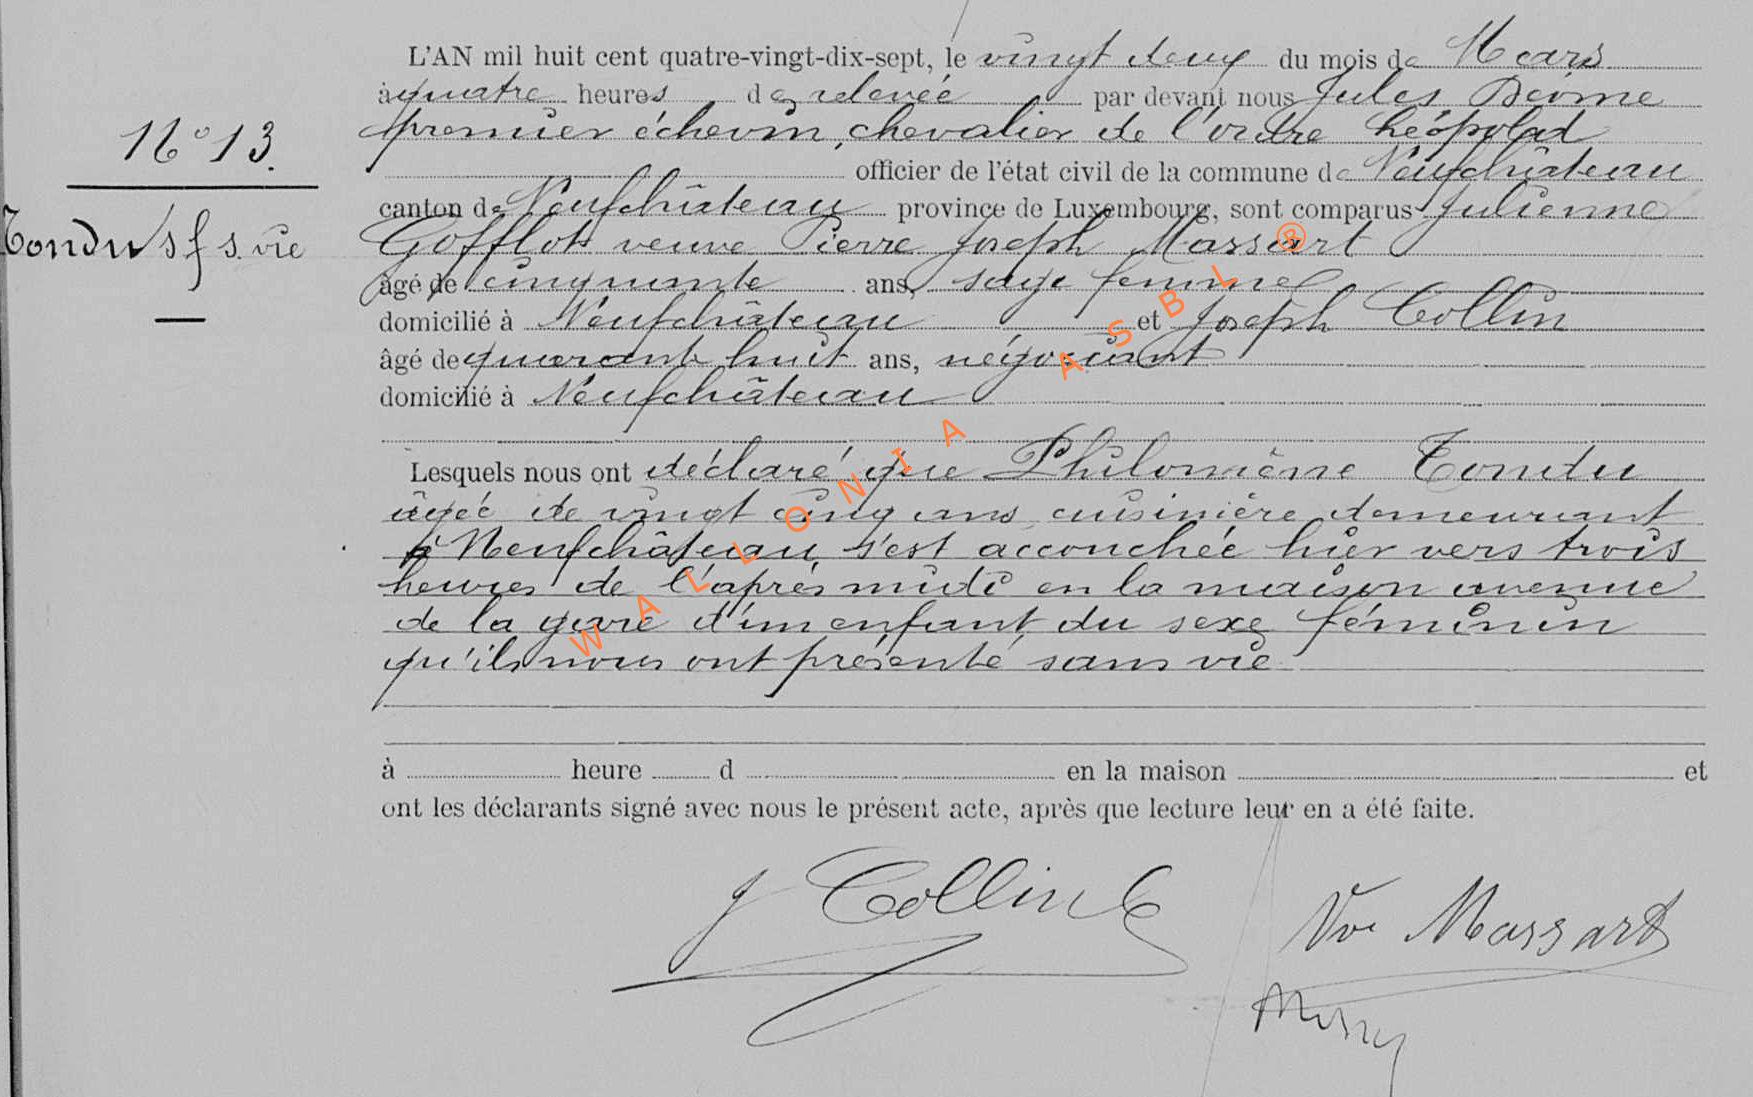 L'AN mil huit cent quatre-vingt-dix-sept, le vingt deux du mois de Mars
à quatre heures de relevée par devant nous Jules
N° 13.
premier échevin, chevalier de l'ordre Léopold
officier de l'état civil de la commune de Neufchâteau
canton de Neufchâteau province de Luxembourg, sont comparus Julienne
Tondu s f s. vie
Gofflot veuve Pierre Joseph Massart
âgé de cinquante ans, sage femme
domicilié à Neufchâteau et Joseph Collin
âgé de quarante huit ans, négociant
domicilié à Neufchâteau
Lesquels nous ont déclaré que Philomène Tondu
âgée de vingt cinq ans, cuisinière demeurant
à Neufchâteau, s'est accouchée hier vers trois
heures de l'après midi en la maison avenue
de la gare d'un enfant du sexe féminin
qu'ils nous ont présenté sans vie
à heure d en la maison et
ont les déclarants signé avec nous le présent acte, après que lecture leur en a été faite.
J Collin
Vve Massart
WALLONIA ASBL ®